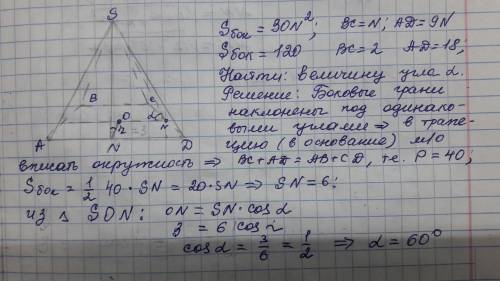 S
B
C
O
α
M
r=3
A
N
D
Sбок = 30N²; BC=N; AD=9N
Sбок = 120 BC=2 AD=18;
Найти: величину угла α.
Решение: Боковые грани
наклонены под одинако-
выми углами ⇒ в трапе-
цию (в основание) м/о
вписать окружность ⇒ BC+AD=AB+CD, т.е. P=40;
Sбок = 1/2 40·SN = 20·SN ⇒ SN=6;
из Δ SON: ON=SN·cos α
3 = 6 cos α
cos α = 3/6 = 1/2 ⇒ α=60°